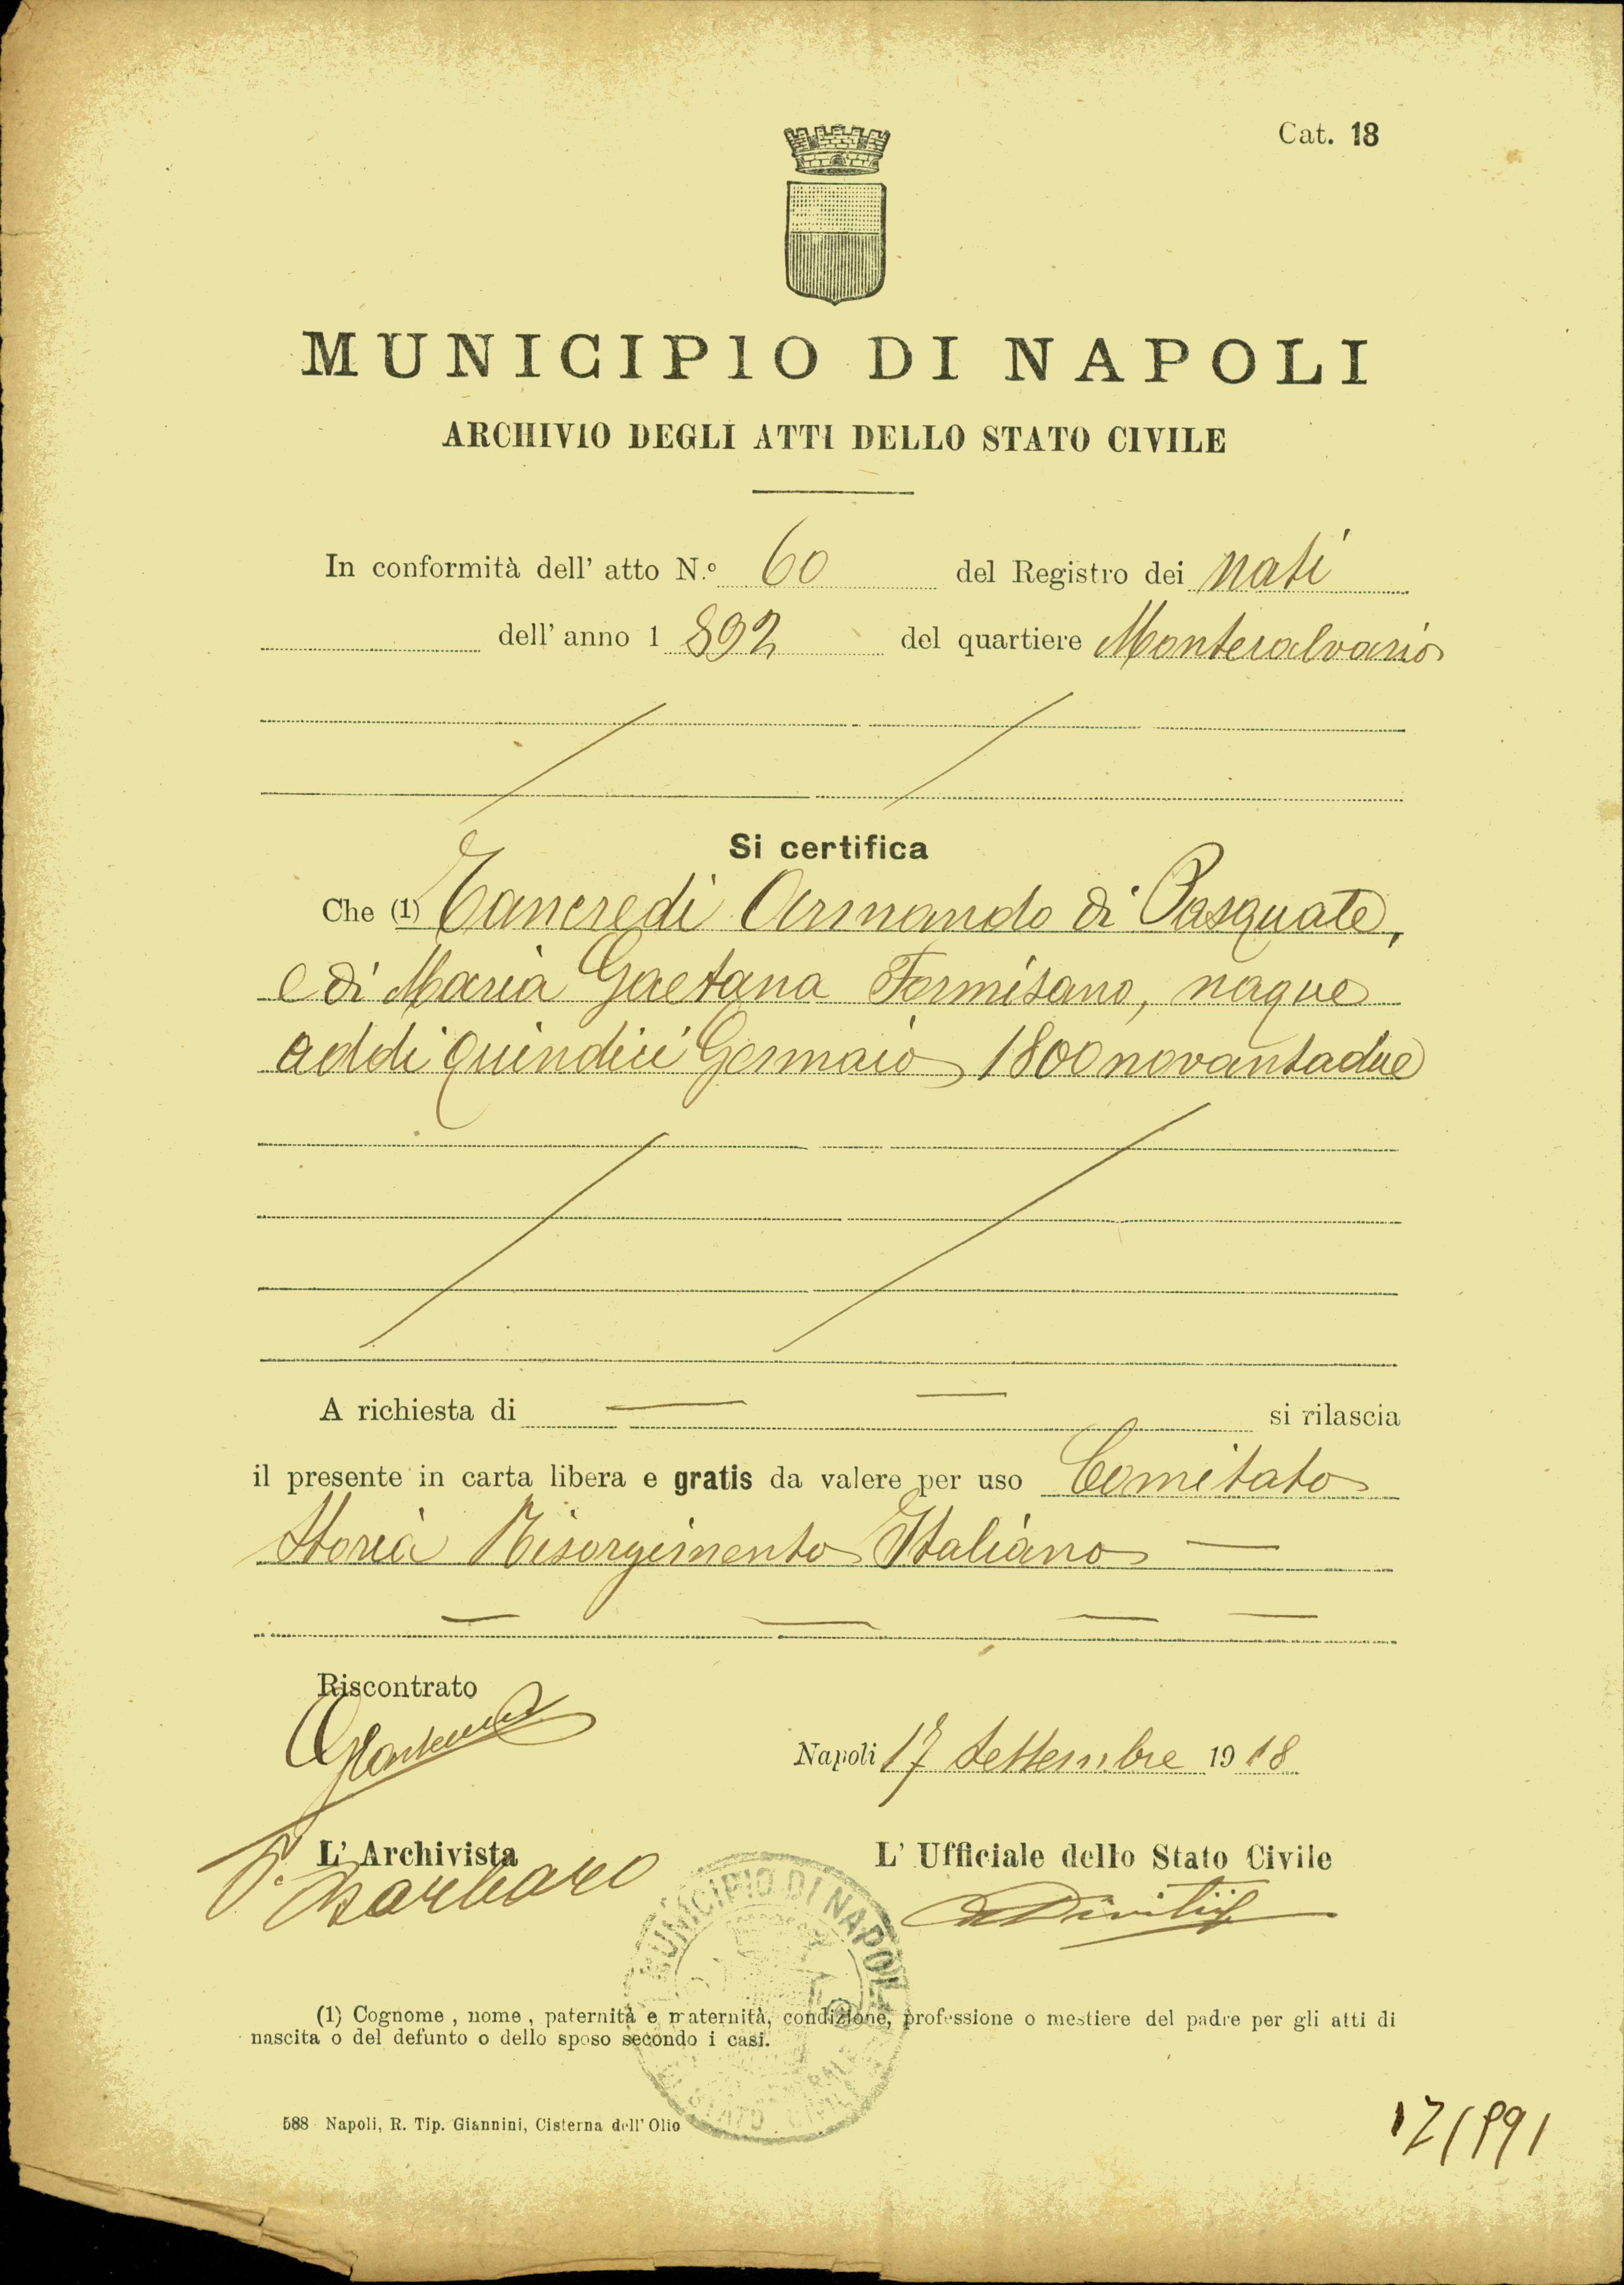 Cat. 18
MUNICIPIO DI NAPOLI
ARCHIVIO DEGLI ATTI DELLO STATO CIVILE
In conformità dell' atto N.º 60 del Registro dei nati
dell' anno 1 892 del quartiere Montecalvario
Si certifica
Che (1) Tancredi Armando di Pasquale,
e di Maria Gaetana Formisano, naque
addi quindici Gennaio 1800novantadue
A richiesta di si rilascia
il presente in carta libera e gratis da valere per uso Comitato
Storia Risorgimento Italiano
Riscontrato
Napoli 17 Settembre 1918
L' Archivista
L' Ufficiale dello Stato Civile
Barbaro
MUNICIPIO DI NAPOLI
(1) Cognome, nome, paternità e maternità, condizione, professione o mestiere del padre per gli atti di
nascita o del defunto o dello sposo secondo i casi.
588 Napoli, R. Tip. Giannini, Cisterna dell' Olio